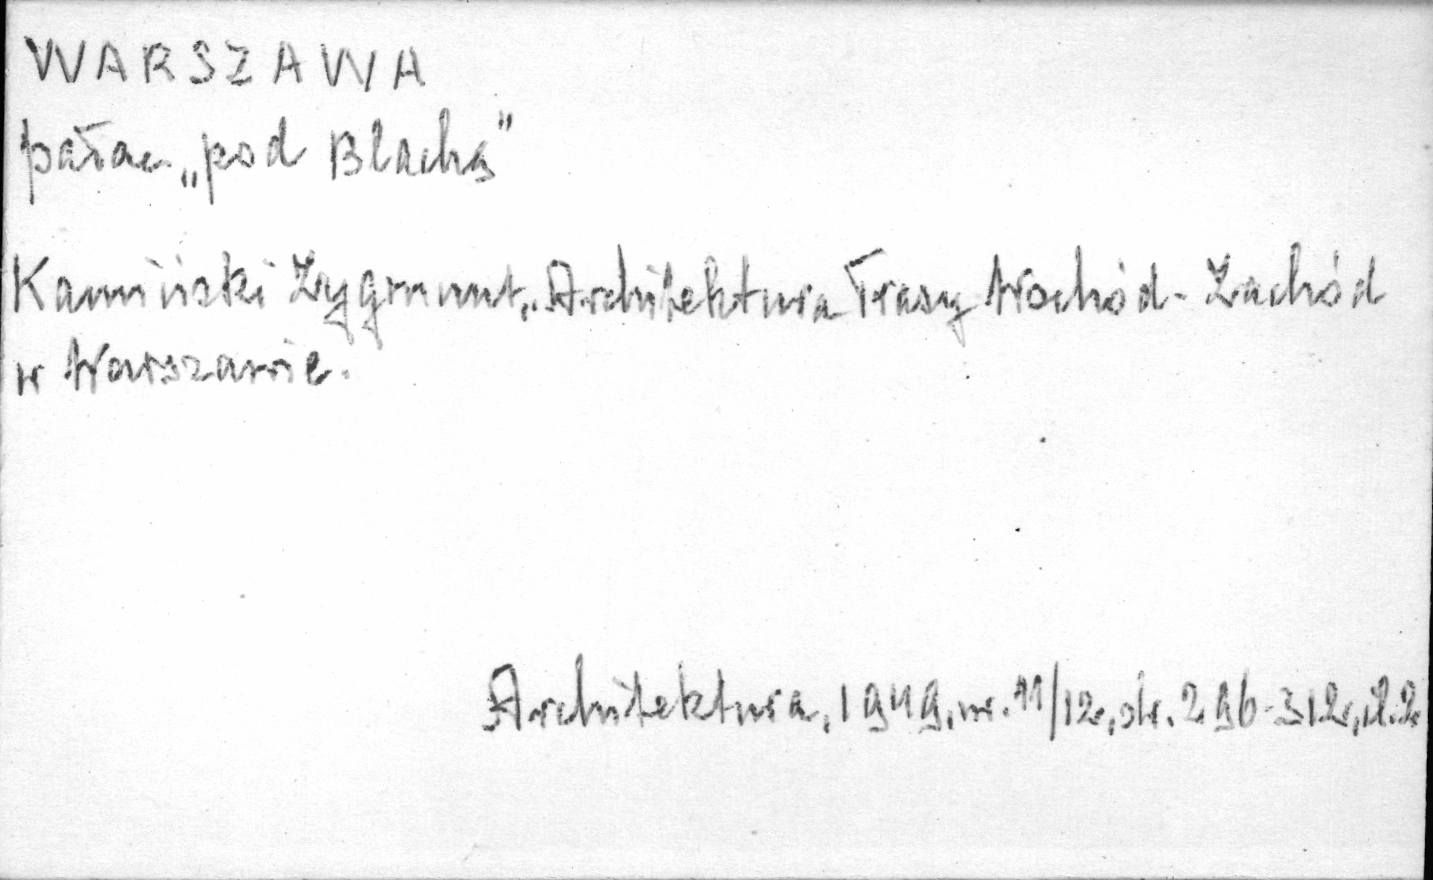 WARSZAWA
pałac „pod Blachą"
Kamiński Zygmunt, Architektura Trasy Wschód-Zachód
w Warszawie.
Architektura, 1949, nr. 11/12, str. 296-312, il. 2